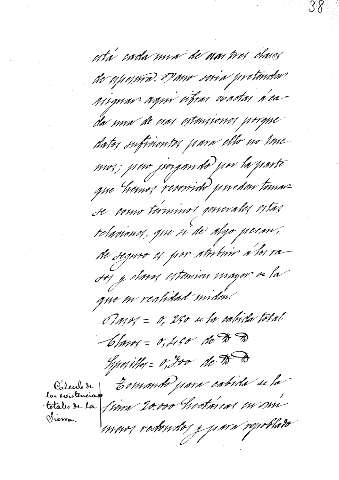 38
está cada una de esas tres clases
de espesura. Vano seria pretender
asignar aqui cifras exactas á ca-
da una de esas estensiones porque
datos suficientes para ello no tene-
mos; pero juzgando por la parte
que hemos recorrido pueden tomar-
se como términos generales estas
relaciones, que si de algo pecan,
de seguro es por atribuir á los ra-
sos y claros estension mayor de la
que en realidad miden.
Rasos = 0,250 de la cabida total
Claros = 0,450 de D D
Espesillos = 0,300 de D D
Cálculo de
las existencias
totales de la
Sierra.
Tomando para cabida de la
sierra 20.000 hectáreas en nú-
meros redondos y para repoblado